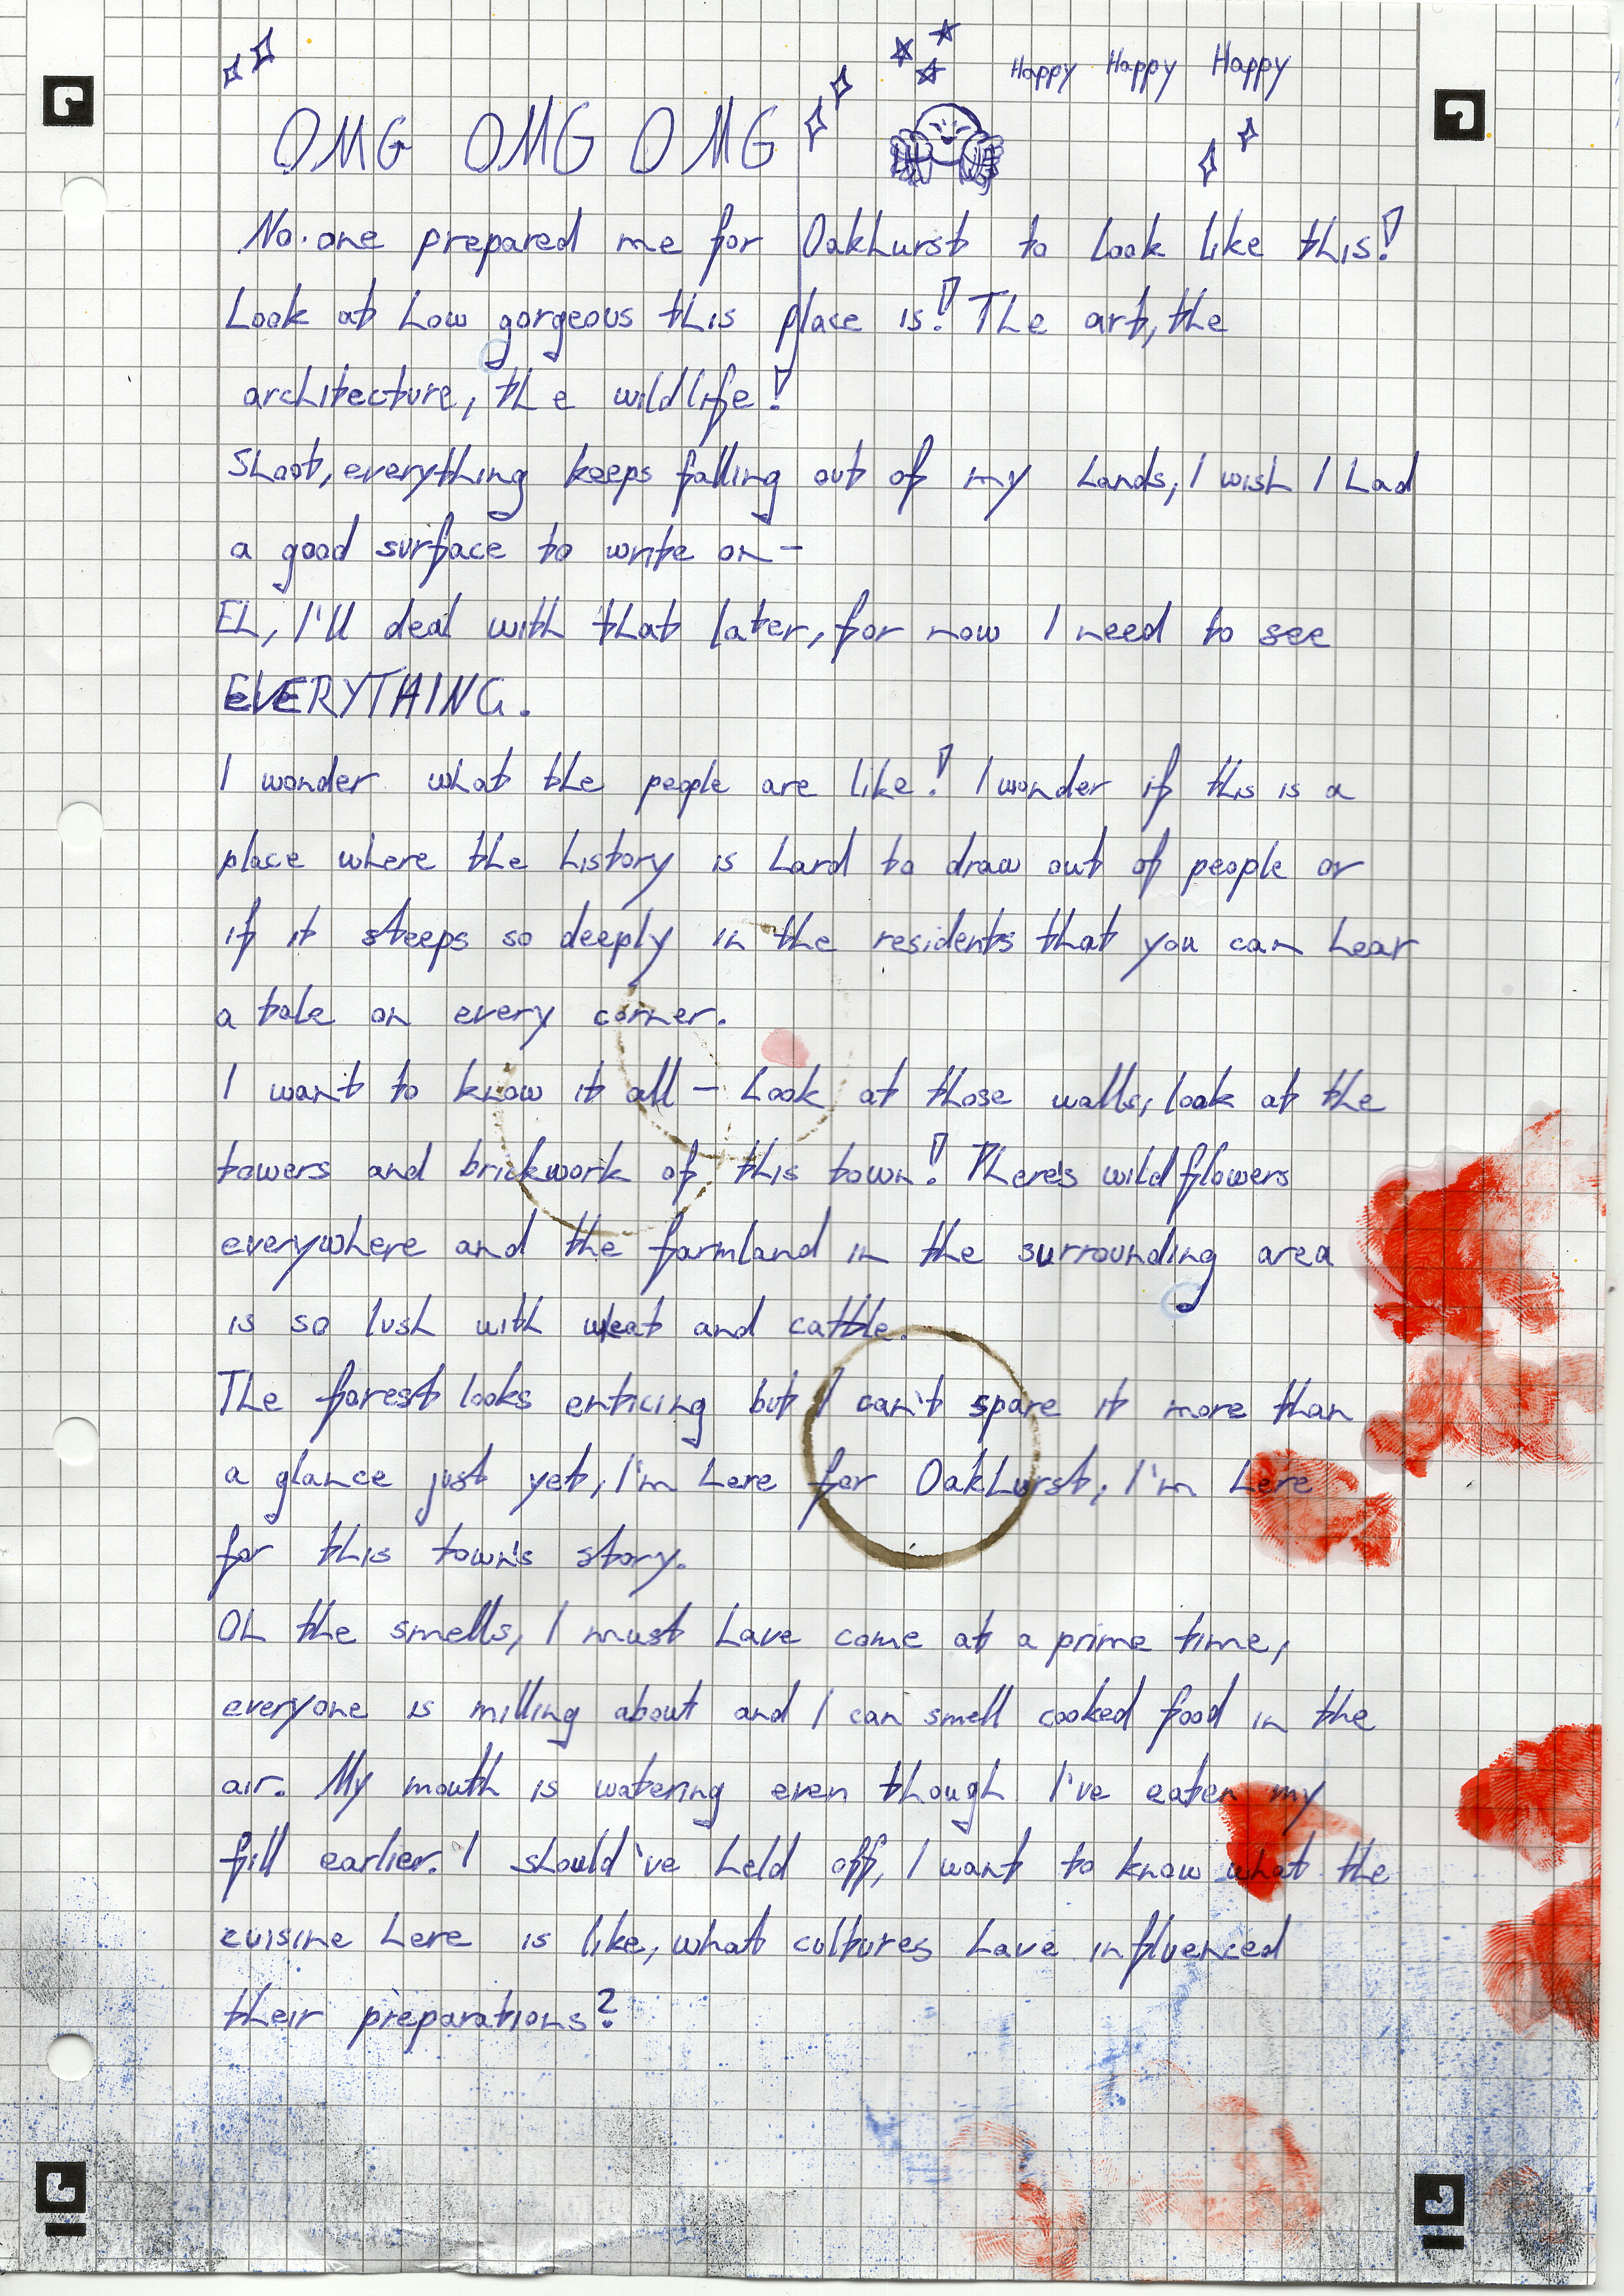 Happy Happy Happy
OMG OMG OMG
No one prepared me for Oakhurst to look like this!
Look at how gorgeous this place is! The art, the
architecture, the wildlife!
Shoot, everything keeps falling out of my hands, I wish I had
a good surface to write on-
Eh, I'll deal with that later, for now I need to see
EVERYTHING.
I wonder what the people are like! I wonder if this is a
place where the history is hard to draw out of people or
if it steeps so deeply in the residents that you can hear
a tale on every corner.
I want to know it all - Look at those walls, look at the
towers and brickwork of this town! There's wildflowers
everywhere and the farmland in the surrounding area
is so lush with wheat and cattle.
The forest looks enticing but I can't spare it more than
a glance just yet, I'm here for Oakhurst, I'm here
for this town's story.
Oh the smells, I must have come at a prime time,
everyone is milling about and I can smell cooked food in the
air. My mouth is watering even though I've eaten my
fill earlier. I should've held off, I want to know what the
cuisine here is like, what cultures have influenced
their preparations?